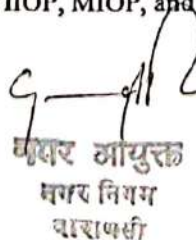 IIOP, MIOP, and
नगर आयुक्त
नगर निगम
वाराणसी